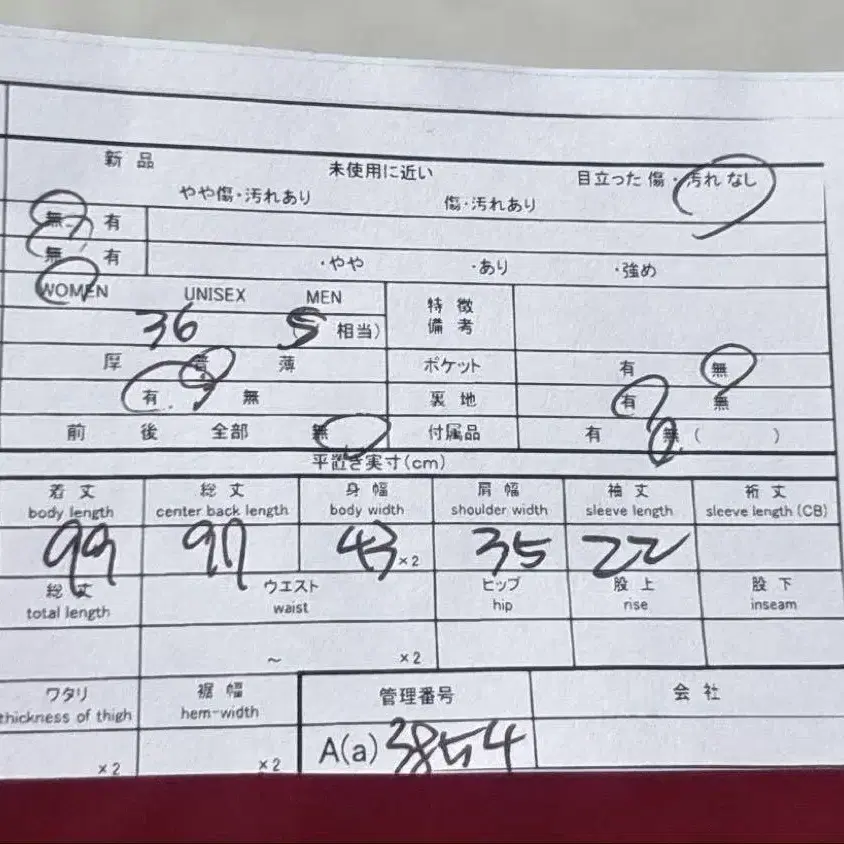 新品 未使用に近い 目立った傷・汚れなし
やや傷・汚れあり 傷・汚れあり
無 有
無 有 ・やや ・あり ・強め
WOMEN UNISEX MEN 特徴
36 S 相当) 備考
厚 普 薄 ポケット 有 無
有 無 裏地 有 無
前 後 全部 無 付属品 有 無 ( )
平置き実寸(cm)
着丈 総丈 身幅 肩幅 袖丈 裄丈
body length center back length body width shoulder width sleeve length sleeve length (CB)
99 97 43 ×2 35 22
総丈 ウエスト ヒップ 股上 股下
total length waist hip rise inseam
~ ×2
ワタリ 裾幅 管理番号 会社
thickness of thigh hem-width
×2 ×2 A(a) 3854